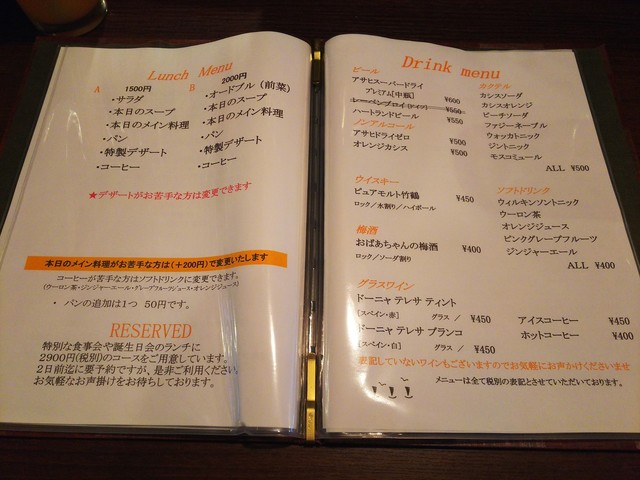 Lunch Menu
A 1500円
・サラダ
・本日のスープ
・本日のメイン料理
・パン
・特製デザート
・コーヒー
B 2000円
・オードブル(前菜)
・本日のスープ
・本日のメイン料理
・パン
・特製デザート
・コーヒー
★デザートがお苦手な方は変更できます
本日のメイン料理がお苦手な方は(+200円)で変更いたします
コーヒーが苦手な方はソフトドリンクに変更できます。
(ウーロン茶・ジンジャーエール・グレープフルーツジュース・オレンジジュース)
・ パンの追加は1つ 50円です。
RESERVED
特別な食事会や誕生日会のランチに
2900円(税別)のコースをご用意しています。
2日前迄に要予約ですが、是非ご利用ください
お気軽なお声掛けをお待ちしております。
Drink menu
ビール
アサヒスーパードライ
プレミアム[中瓶] ¥600
レーベンブロイ(ドイツ) ¥550
ハートランドビール ¥550
ノンアルコール
アサヒドライゼロ ¥500
オレンジカシス ¥500
ウイスキー
ピュアモルト竹鶴 ¥450
ロック/水割り/ハイボール
梅酒
おばあちゃんの梅酒 ¥400
ロック/ソーダ割り
カクテル
カシスソーダ
カシスオレンジ
ピーチソーダ
ファジーネーブル
ウォッカトニック
ジントニック
モスコミュール
ALL ¥500
ソフトドリンク
ウィルキンソントニック
ウーロン茶
オレンジジュース
ピンクグレープフルーツ
ジンジャーエール
ALL ¥400
グラスワイン
ドーニャ テレサ ティント
[スペイン・赤] グラス / ¥450
ドーニャ テレサ ブランコ
[スペイン・白] グラス / ¥450
アイスコーヒー ¥450
ホットコーヒー ¥400
表記していないワインもございますのでお気軽にお声がけくださいませ
メニューは全て税別の表記とさせていただいております。